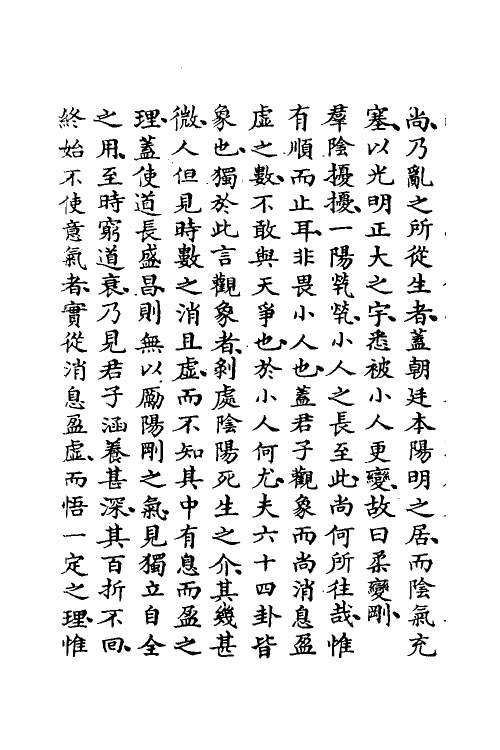 尚、乃亂之所從生者、蓋朝廷本陽明之居、而陰氣充
塞、以光明正大之宇、悉被小人更變、故曰柔變剛、
羣陰擾擾、一陽煢煢、小人之長至此、尚何所往哉、惟
有順而止耳、非畏小人也、蓋君子觀象而尚消息盈
虛之數、不敢與天爭也、於小人何尤、夫六十四卦皆
象也、獨於此言觀象者、剝處陰陽死生之介、其幾甚
微、人但見時數之消且虛、而不知其中有息而盈之
理、蓋使道長盛昌、則無以勵陽剛之氣、見獨立自全
之用、至時窮道衰、乃見君子涵養甚深、其百折不回、
終始不使意氣者、實從消息盈虛、而悟一定之理、惟